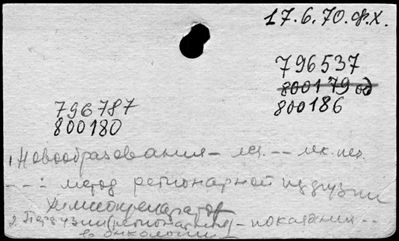 17.6.70.ф.х.
796537
800179 од
800186
796787
800180
1. Новообразования - леч. -- лек. леч.
- - : метод регионарной перфузии
химиопрепаратов
2. Перфузии (регионарные) - показания - -
в онкологии